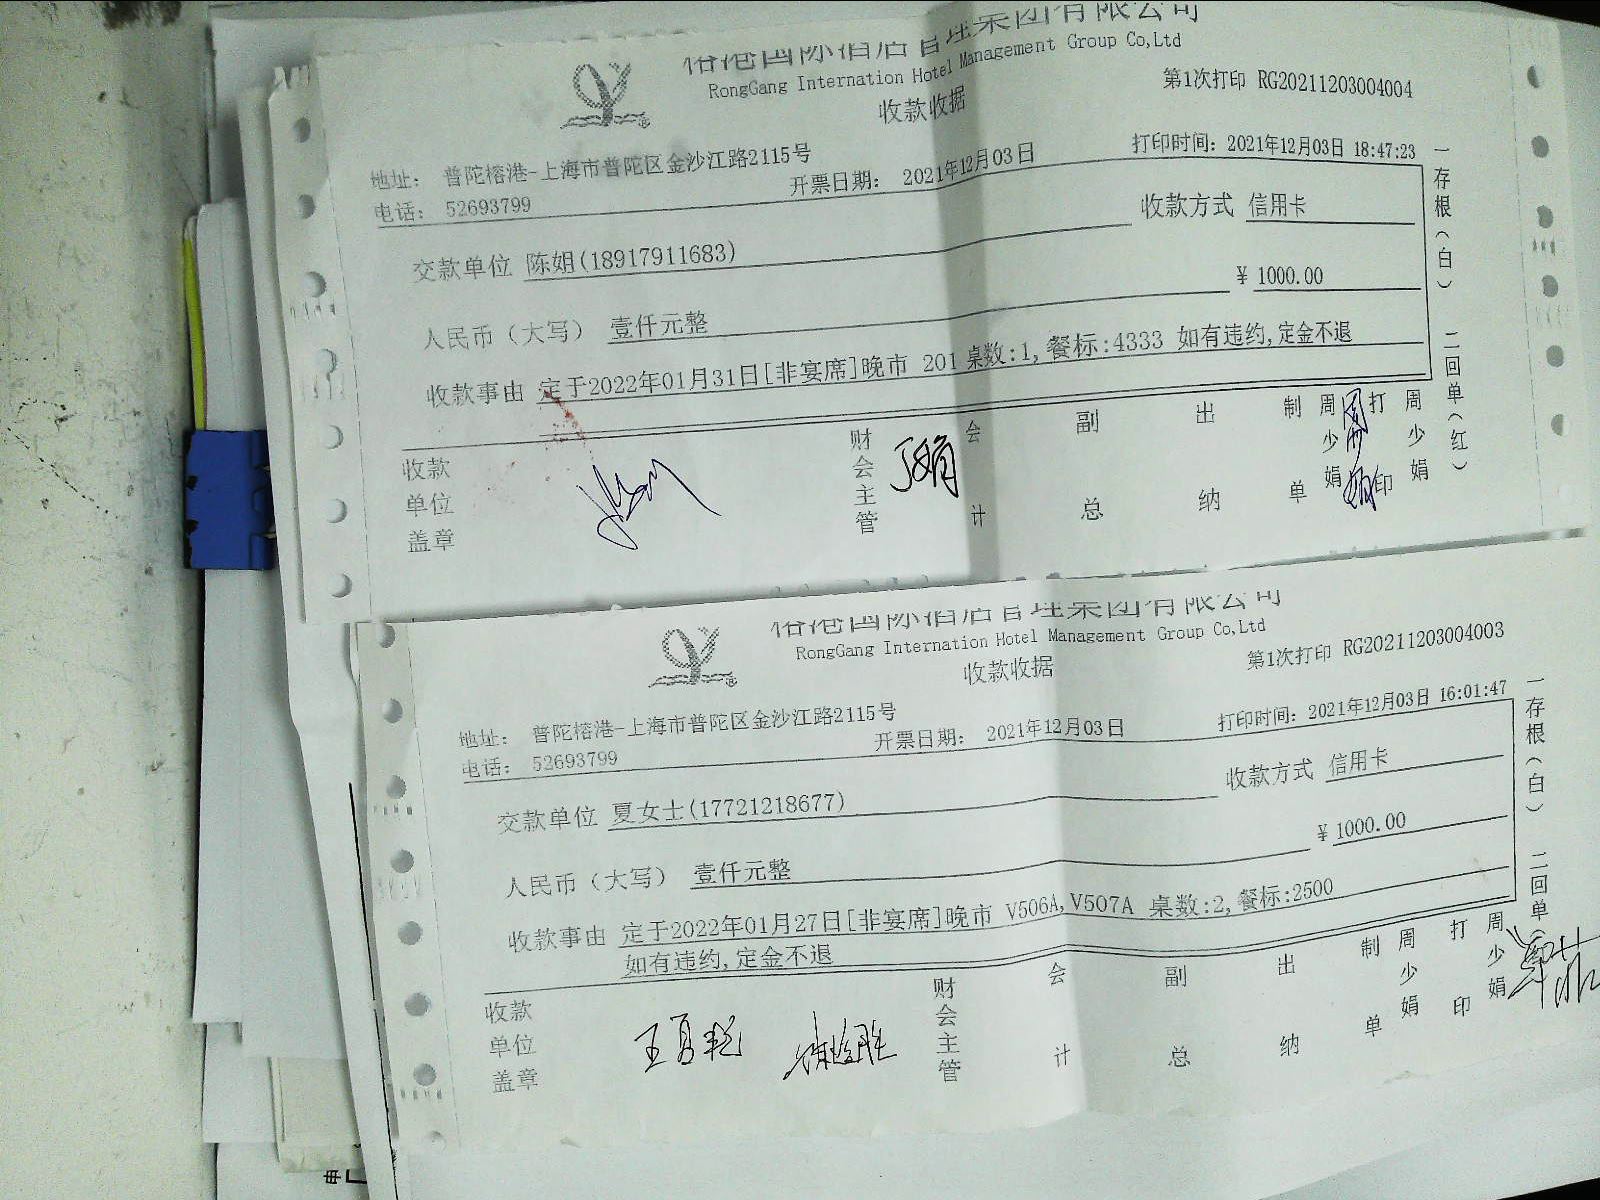 榕港国际酒店管理集团有限公司
RongGang Internation Hotel Management Group Co,Ltd
收款收据
第1次打印 RG20211203004004
地址： 普陀榕港-上海市普陀区金沙江路2115号
电话： 52693799
开票日期： 2021年12月03日
打印时间： 2021年12月03日 18:47:23
交款单位 陈娟(18917911683)
收款方式 信用卡
人民币（大写） 壹仟元整
¥ 1000.00
收款事由 定于2022年01月31日[非宴席]晚市 201 桌数:1,餐标:4333 如有违约,定金不退
一存根（白） 二回单（红）
收款单位盖章
财会主管
会计
副总
出纳
制单 周少娟
打印 周少娟
榕港国际酒店管理集团有限公司
RongGang Internation Hotel Management Group Co,Ltd
收款收据
第1次打印 RG20211203004003
地址： 普陀榕港-上海市普陀区金沙江路2115号
电话： 52693799
开票日期： 2021年12月03日
打印时间： 2021年12月03日 16:01:47
交款单位 夏女士(17721218677)
收款方式 信用卡
人民币（大写） 壹仟元整
¥ 1000.00
收款事由 定于2022年01月27日[非宴席]晚市 V506A,V507A 桌数:2,餐标:2500
如有违约,定金不退
一存根（白） 二回单（
收款单位盖章
财会主管
会计
副总
出纳
制单 周少娟
打印 周少娟